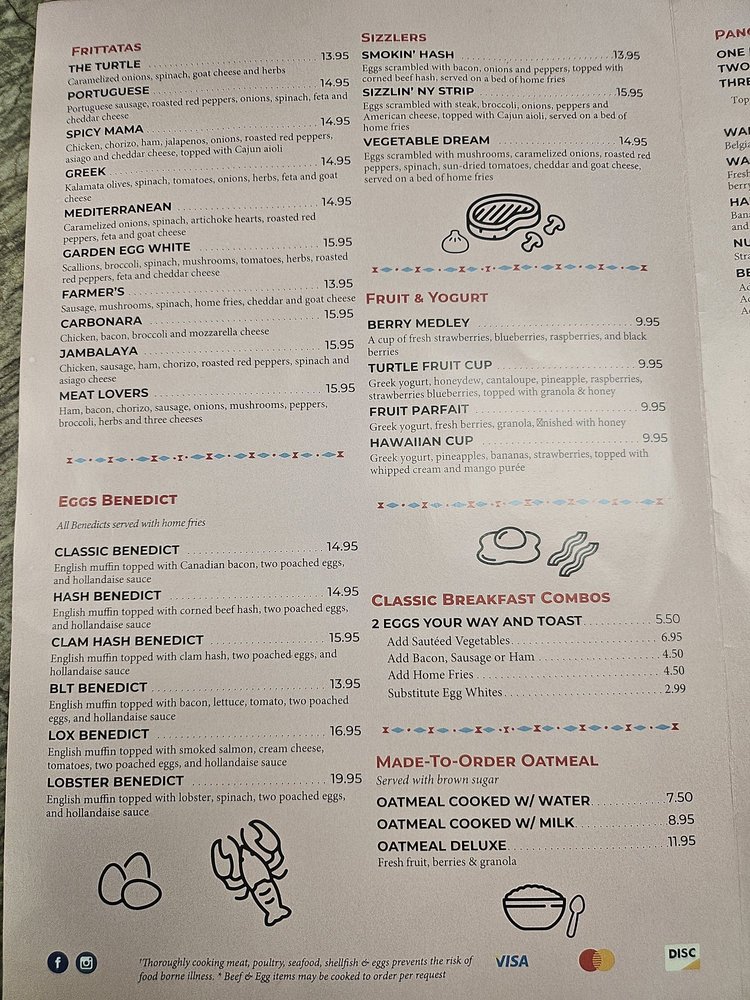 FRITTATAS
THE TURTLE 13.95
Caramelized onions, spinach, goat cheese and herbs
PORTUGUESE 14.95
Portuguese sausage, roasted red peppers, onions, spinach, feta and
cheddar cheese
SPICY MAMA 14.95
Chicken, chorizo, ham, jalapenos, onions, roasted red peppers,
asiago and cheddar cheese, topped with Cajun aioli
GREEK 14.95
Kalamata olives, spinach, tomatoes, onions, herbs, feta and goat
cheese
MEDITERRANEAN 14.95
Caramelized onions, spinach, artichoke hearts, roasted red
peppers, feta and goat cheese
GARDEN EGG WHITE 15.95
Scallions, broccoli, spinach, mushrooms, tomatoes, herbs, roasted
red peppers, feta and cheddar cheese
FARMER'S 13.95
Sausage, mushrooms, spinach, home fries, cheddar and goat cheese
CARBONARA 15.95
Chicken, bacon, broccoli and mozzarella cheese
JAMBALAYA 15.95
Chicken, sausage, ham, chorizo, roasted red peppers, spinach and
asiago cheese
MEAT LOVERS 15.95
Ham, bacon, chorizo, sausage, onions, mushrooms, peppers,
broccoli, herbs and three cheeses
EGGS BENEDICT
All Benedicts served with home fries
CLASSIC BENEDICT 14.95
English muffin topped with Canadian bacon, two poached eggs,
and hollandaise sauce
HASH BENEDICT 14.95
English muffin topped with corned beef hash, two poached eggs,
and hollandaise sauce
CLAM HASH BENEDICT 15.95
English muffin topped with clam hash, two poached eggs, and
hollandaise sauce
BLT BENEDICT 13.95
English muffin topped with bacon, lettuce, tomato, two poached
eggs, and hollandaise sauce
LOX BENEDICT 16.95
English muffin topped with smoked salmon, cream cheese,
tomatoes, two poached eggs, and hollandaise sauce
LOBSTER BENEDICT 19.95
English muffin topped with lobster, spinach, two poached eggs,
and hollandaise sauce
SIZZLERS
SMOKIN' HASH 13.95
Eggs scrambled with bacon, onions and peppers, topped with
corned beef hash, served on a bed of home fries
SIZZLIN' NY STRIP 15.95
Eggs scrambled with steak, broccoli, onions, peppers and
American cheese, topped with Cajun aioli, served on a bed of
home fries
VEGETABLE DREAM 14.95
Eggs scrambled with mushrooms, caramelized onions, roasted red
peppers, spinach, sun-dried tomatoes, cheddar and goat cheese,
served on a bed of home fries
FRUIT & YOGURT
BERRY MEDLEY 9.95
A cup of fresh strawberries, blueberries, raspberries, and black
berries
TURTLE FRUIT CUP 9.95
Greek yogurt, honeydew, cantaloupe, pineapple, raspberries,
strawberries blueberries, topped with granola & honey
FRUIT PARFAIT 9.95
Greek yogurt, fresh berries, granola, nished with honey
HAWAIIAN CUP 9.95
Greek yogurt, pineapples, bananas, strawberries, topped with
whipped cream and mango purée
CLASSIC BREAKFAST COMBOS
2 EGGS YOUR WAY AND TOAST 5.50
Add Sautéed Vegetables 6.95
Add Bacon, Sausage or Ham 4.50
Add Home Fries 4.50
Substitute Egg Whites 2.99
MADE-TO-ORDER OATMEAL
Served with brown sugar
OATMEAL COOKED W/ WATER 7.50
OATMEAL COOKED W/ MILK 8.95
OATMEAL DELUXE 11.95
Fresh fruit, berries & granola
"Thoroughly cooking meat, poultry, seafood, shellfish & eggs prevents the risk of
food borne illness. * Beef & Egg items may be cooked to order per request
VISA
DISC
ONE
TWO
Top
Belgi
Fresh
berry
Bana
and